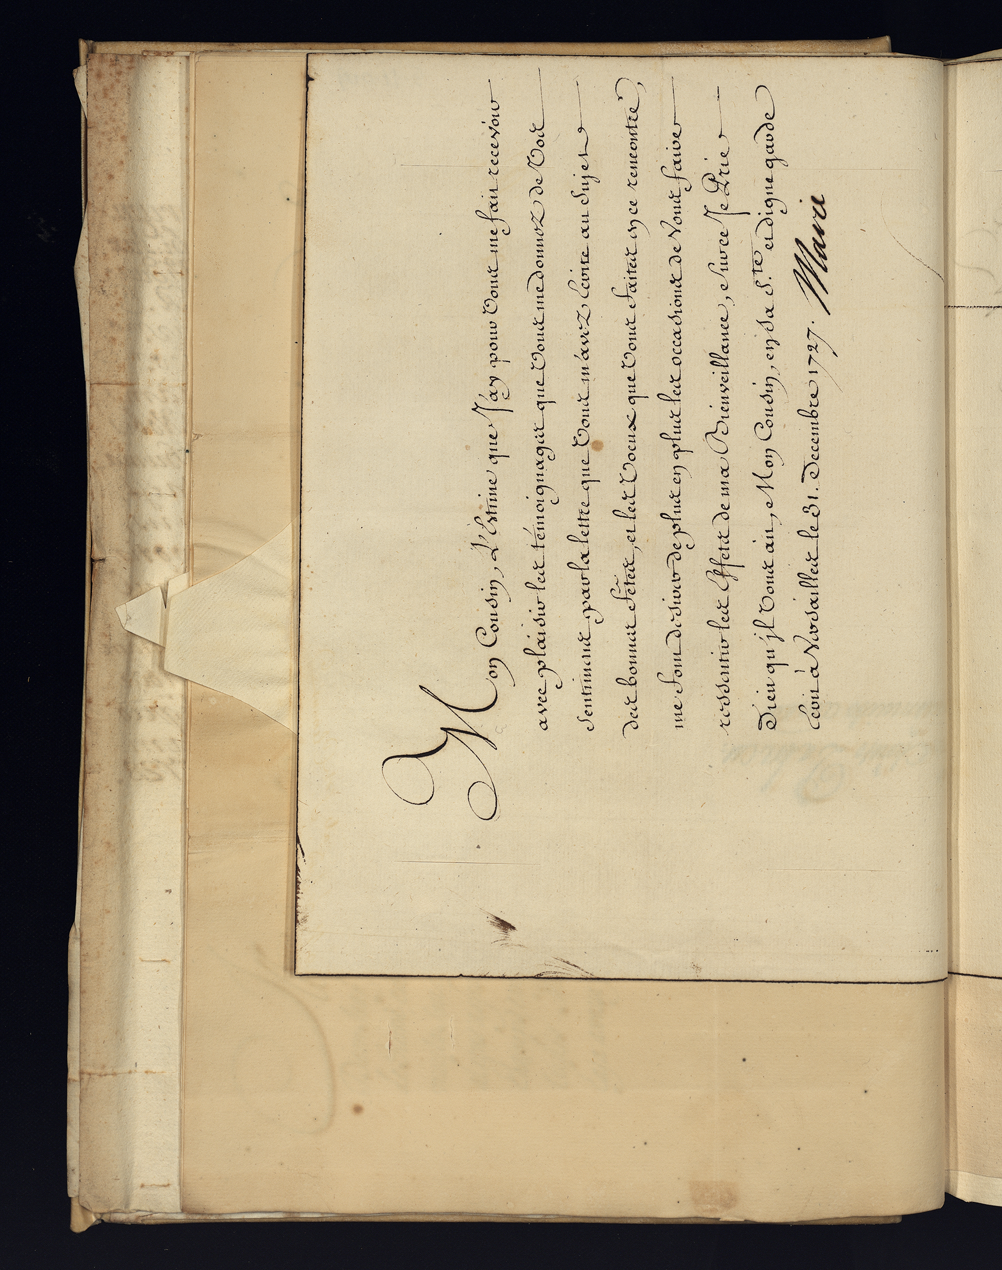 Mon Cousin, L'Estime que J'ay pour Vous me fait recevoir
avec plaisir les témoignages que Vous me donnez de Vos
sentimens par la lettre que Vous m'avez écrite au sujet
des bonnes fêtes, et les Voeux que Vous faites en ce rencontre,
me font desirer de plus en plus les occasions de Vous faire
ressentir les Effets de ma Bienveillance, surce Je Prie
Dieu qu'jl Vous ait, Mon Cousin, en sa Ste. et digne garde
Ecrit à Versailles le 31. Decembre 1727. Marie